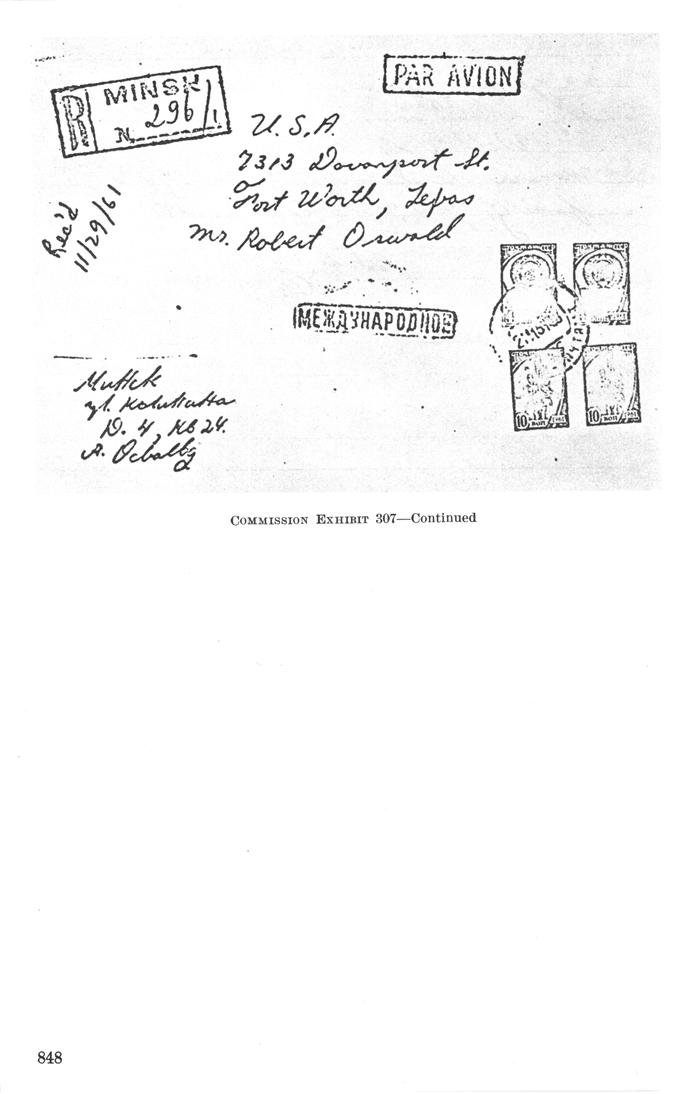 PAR AVION
R MINSK
N 296/1
U.S.A.
7313 Davenport St.
Fort Worth, Texas
Mr. Robert Oswald
Rec'd
11/29/61
МЕЖДУНАРОДНОЕ
Минск
ул. Калинина
Д. 4, КВ 24.
А. Освальд
10 КОП
10 КОП
COMMISSION EXHIBIT 307—Continued
848